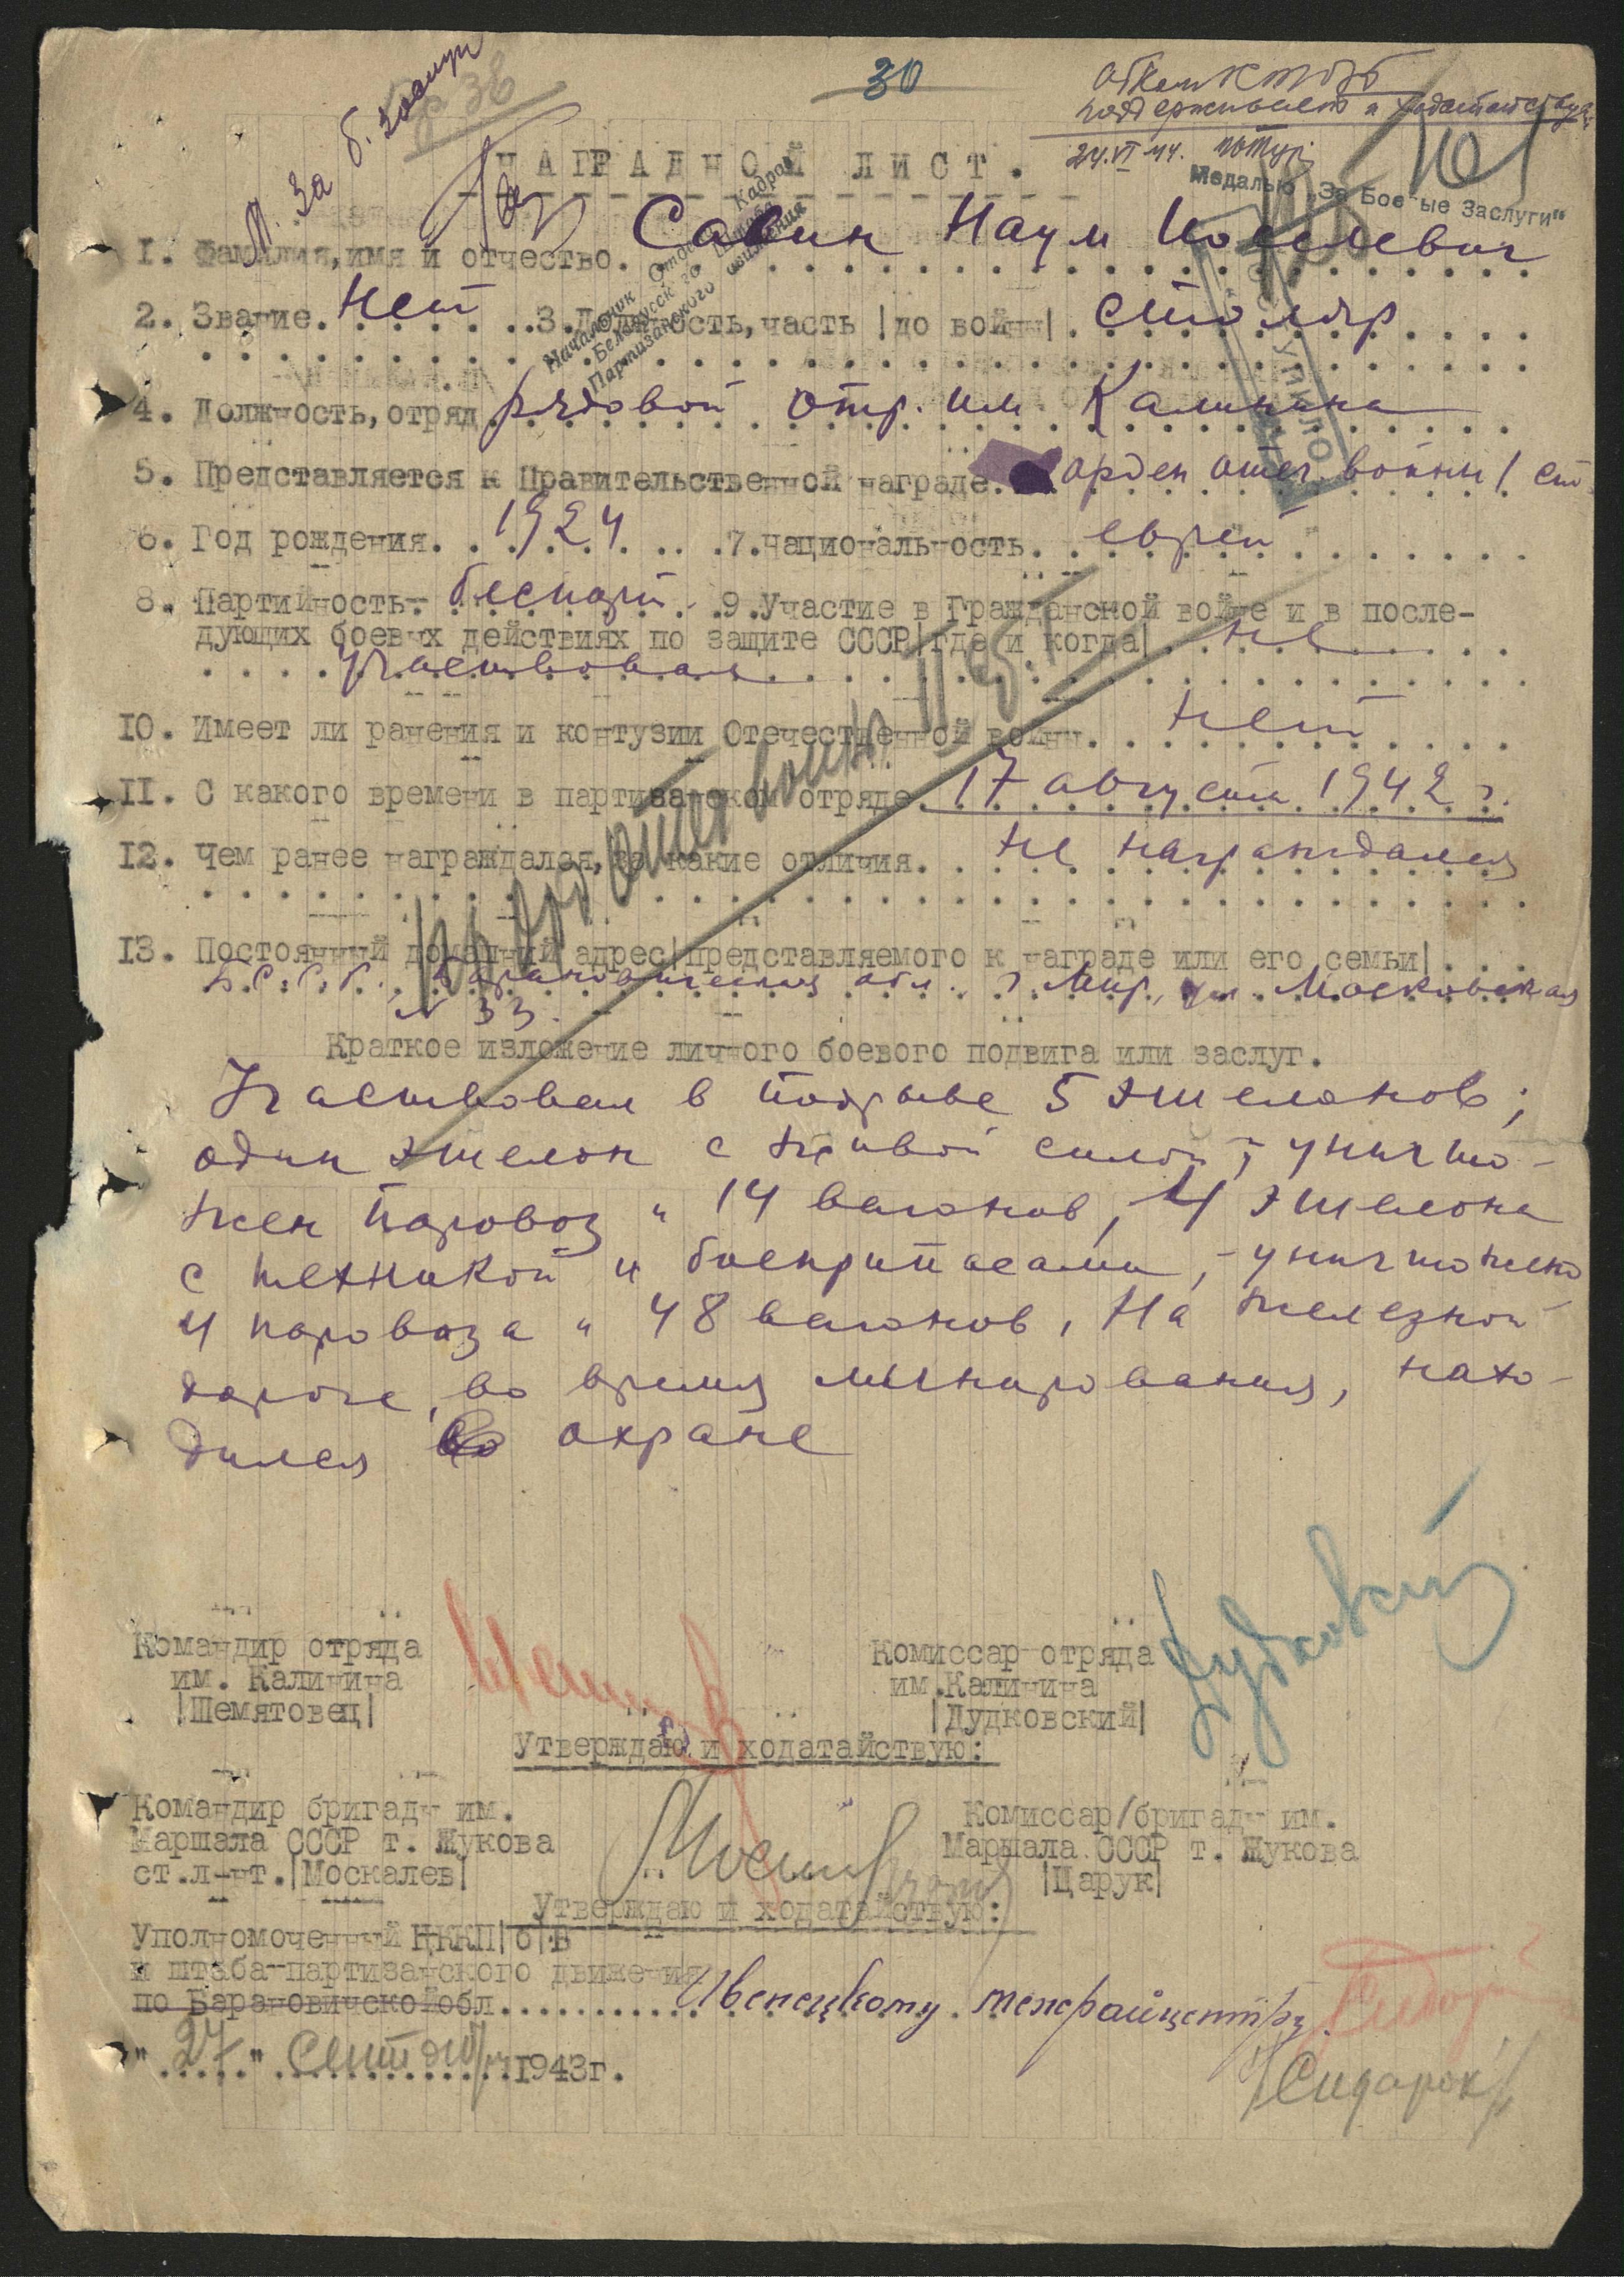 М. За б. заслуги
38
30
Обком КП(б)Б
поддерживает и ходатайствует
24.VI 44.
НАГРАДНОЙ ЛИСТ.
Медалью „За Боевые Заслуги"
Начальник Отдела Кадров
Белорусск го Штаба
Партизанского движения
1. Фамилия, имя и отчество. Савин Наум Иоселевич
2. Звание. Нет 3. Должность, часть |до войны| столяр
4. Должность, отряд рядовой отр. им Калинина
5. Представляется к Правительственной награде. орден отеч. войны 1 ст.
6. Год рождения. 1924 7. Национальность. еврей
8. Партийность- беспарт. 9. Участие в Гражданской войне и в после-
дующих боевых действиях по защите СССР |где и когда| не
участвовал
10. Имеет ли ранения и контузии Отечественной войны. нет
11. С какого времени в партизанском отряде 17 августа 1942 г.
12. Чем ранее награждался, за какие отличия. не награждался
орд. отеч войны II ст
13. Постоянный домашний адрес |представляемого к награде или его семьи|
Б.С.С.Р., Барановическая обл. г. Мир, ул. Московская
№ 33.
Краткое изложение личного боевого подвига или заслуг.
Участвовал в подрыве 5 эшелонов;
один эшелон с живой силой, уничто-
жен паровоз и 14 вагонов, 4 эшелона
с техникой и боеприпасами, - уничтожено
4 паровоза и 48 вагонов, На железной
дороге, во время минирования, нахо-
дился в охране
Командир отряда
им. Калинина
|Шемятовец|
Комиссар отряда
им. Калинина
|Дудковский|
Дудковский
Утверждаю и ходатайствую:
Командир бригады им.
Маршала СССР т. Жукова
ст. л-нт. |Москалев|
Комиссар бригады им.
Маршала СССР т. Жукова
|Царук|
Утверждаю и ходатайствую:
Уполномоченный ЦККП|б|Б
и штаба партизанского движения
по Барановичской обл. Ивенецкому межрайцентру.
"27" Сентября 1943г.
/Сидорок/